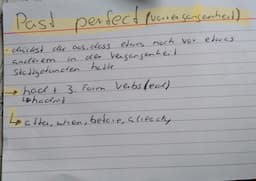 Past perfect (vorvergangenheit)
- drückst du aus, dass etwas noch vor etwas
anderem in der Vergangenheit
stattgefunden hatte
→ had + 3. Form Verbs (ed)
↳ hadn't
↳ after, when, before, already